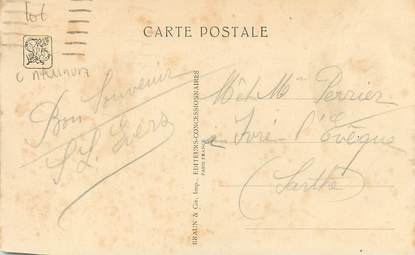 CARTE POSTALE
Bon Souvenir
BRAUN & Cie, Imp. EDITEURS-CONCESSIONNAIRES
PARIS FRANCE
M et Mme Perrier
à Yvré-l'Evêque
(Sarthe)